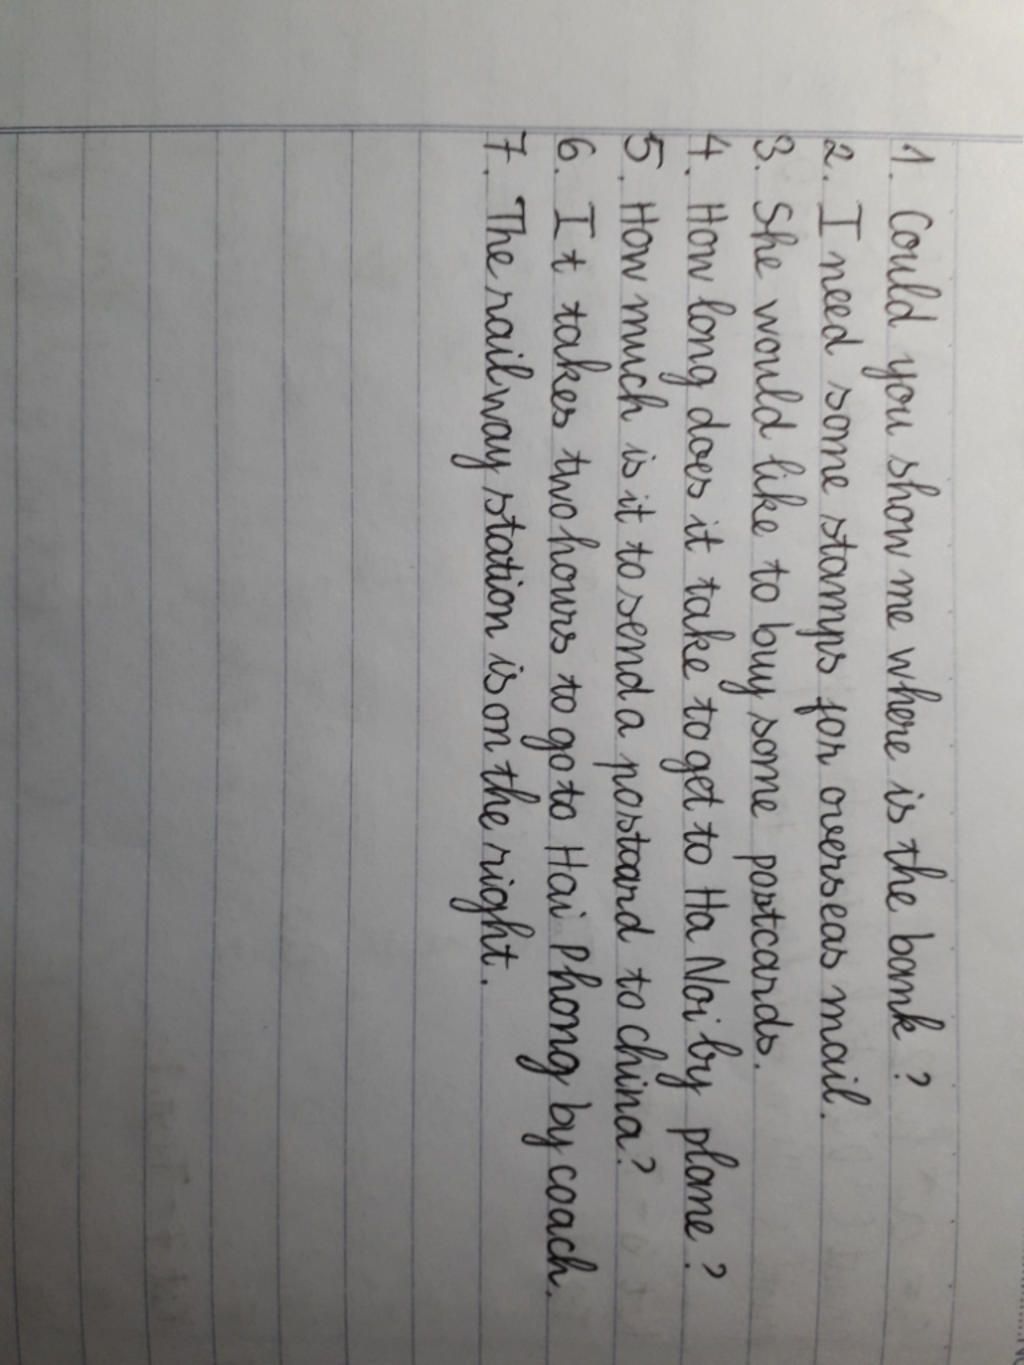 1. Could you show me where is the bank ?
2. I need some stamps for overseas mail.
3. She would like to buy some postcards.
4. How long does it take to get to Ha Noi by plane ?
5. How much is it to send a postcard to china ?
6. It takes two hours to go to Hai Phong by coach.
7. The railway station is on the right.